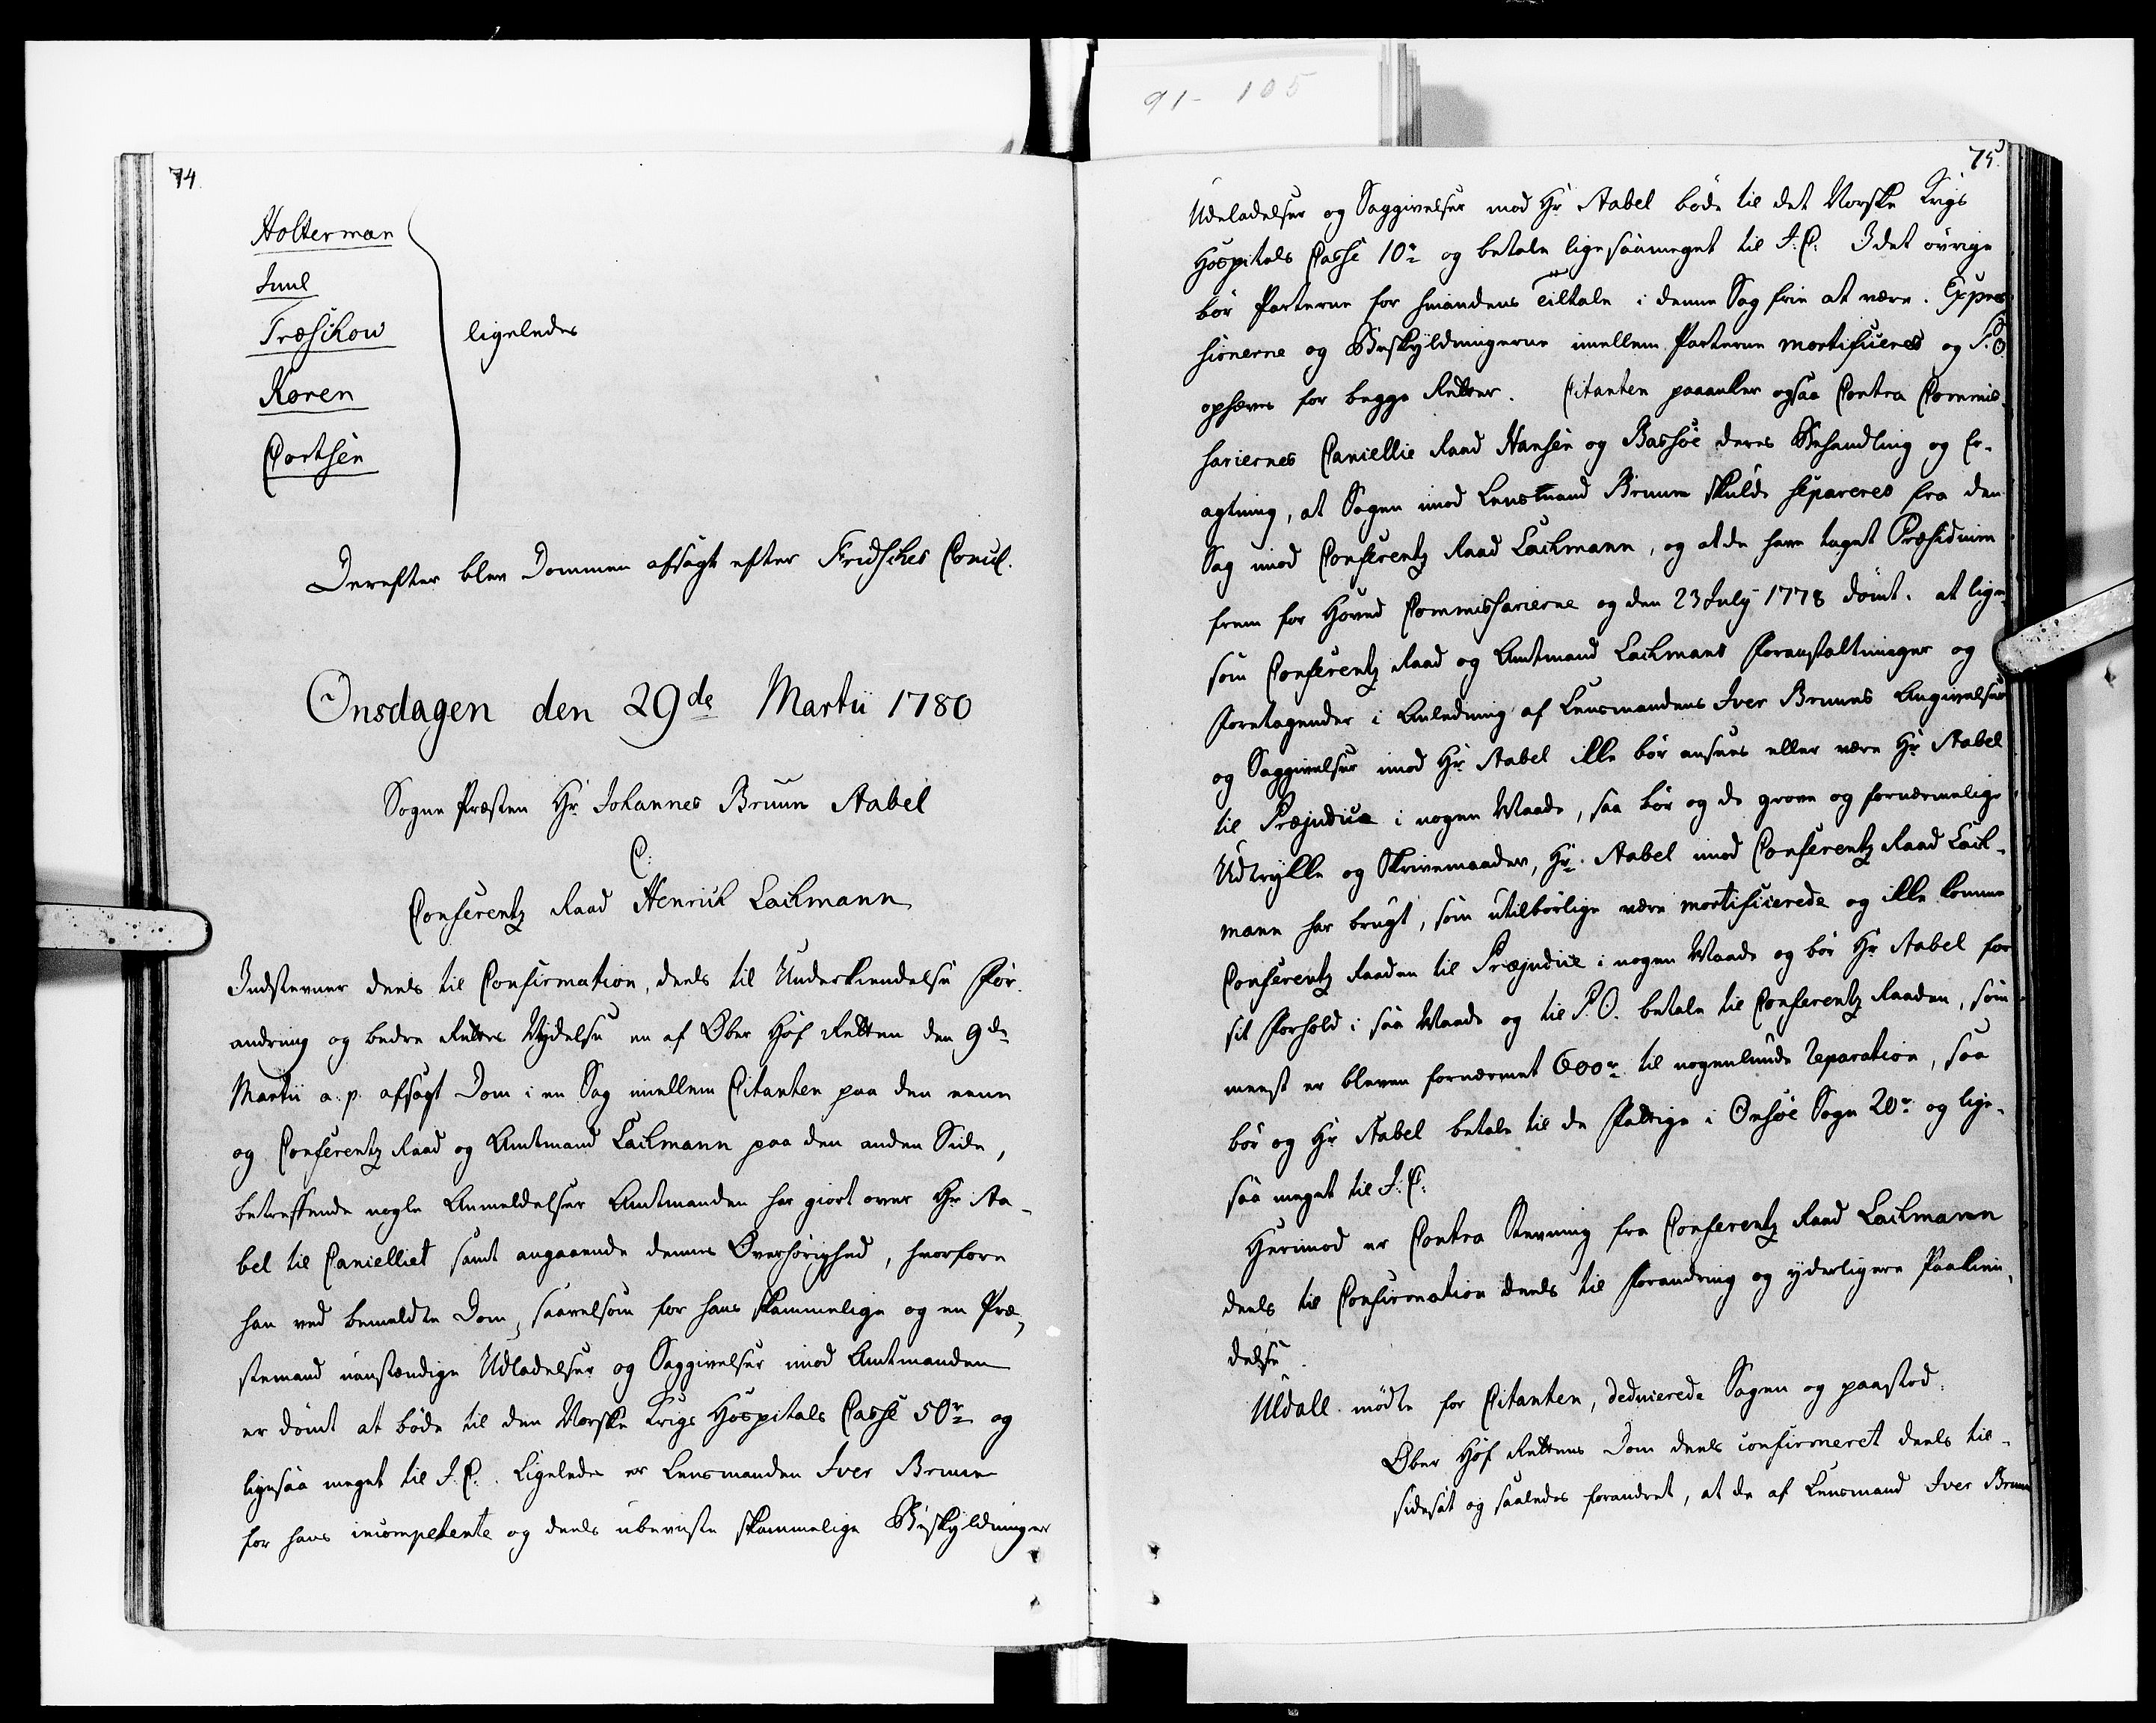 74.
Holterman
Juul
Træschow
Koren
Cortsen
ligeledes
Derefter blev Dommen afsagt efter Fridsches Concl.
Onsdagen den 29de Martii 1780
Sogne Præsten Hr Johannes Bruun Aabel
C:
Conferentz Raad Henrich Lachmann
Indstevner deels til Confirmation, deels til Underkiendelse For-
andring og bedre Rettes Nydelse en af Ober Hof Retten den 9de
Martii a. p. afsagt Dom i en Sag imellem Citanten paa den eene
og Conferentz Raad og Amtmand Lachmann paa den anden Side,
betreffende nogle Anmeldelser Amtmanden har giort over Hr Aa-
bel til Cancelliet samt angaaende dennes Overhørighed, hvorfore
han ved bemeldte Dom, saavelsom for hans skammelige og en Præ-
stemand uanstændige Udladelser og Saggivelser imod Amtmanden
er dömt at böde til den Norske Krigs Hospitals Casse 50r og
ligesaa meget til J. C. Ligeledes er Lensmanden Iver Bruun
for hans incompetente og deels ubeviste skammelige Beskyldninger
91-105
75.
Udeladelser og Saggivelser mod Hr Aabel böde til det Norske Krigs
Hospitals Casse 10r og betale ligesaameget til J: C: I det övrige
bör Parterne for hinandens Tiltale i denne Sag frie at være. Expres-
sionerne og Beskyldningerne imellem Parterne mortificeres og P. O
ophæves for begge Retter. Citanten paaanker ogsaa Contra Commis-
sariernes Cancellie Raad Hansen og Bassöe deres Behandling og Er-
agtning, at Sagen imod Lensmand Bruun skulde separeres fra den
Sag imod Conferentz Raad Lachmann, og at de have taget Præsidium
frem for Hoved Commissarierne og den 23 July 1778 dömt. at lige-
som Conferentz Raad og Amtmand Lachmans Foranstaltninger og
Foretagender i Anledning af Lensmandens Iver Bruuns Angivelser
og Saggivelser imod Hr Aabel ikke bör ansees eller være Hr Aabel
til Præjudice i nogen Maade, saa bör og de grove og fornærmelige
Udtrykke og Skrivemaader, Hr. Aabel imod Conferentz Raad Lach-
mann har brugt, som utilbörlige være mortificerede og ikke komme
Conferentz Raaden til Præjudice i nogen Maade og bör Hr Aabel for
sit Forhold i saa Maade og til P. O. betale til Conferentz Raaden, som
meest er bleven fornærmet 600r til nogenlunde Reparation, saa
bör og Hr Aabel betale til de Fattige i Onsöe Sogn 20r og lige-
saa meget til J. C:
Herimod er Contra Stevning fra Conferentz Raad Lachmann
deels til Confirmation deels til Forandring og yderligere Paakien-
delse.
Uldall mödte for Citanten, deducerede Sagen og paastod:
Ober Hof Rettens Dom deels confirmeret deels til-
sidesat og saaledes forandret, at de af Lensmand Iver Bruun